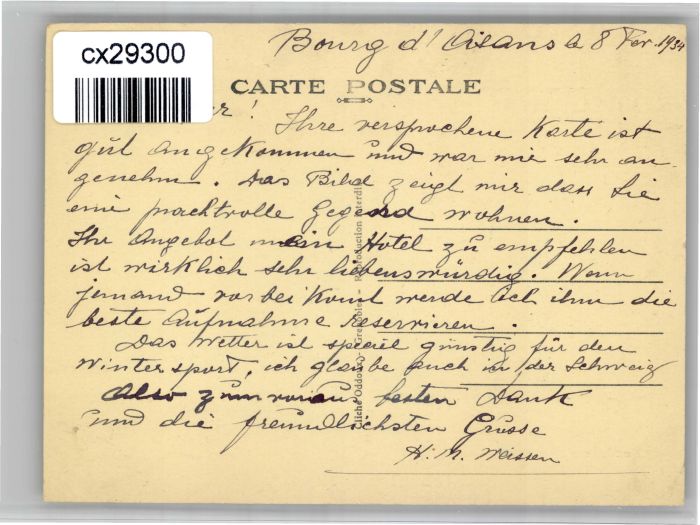 cx29300
Bourg d'Oisans le 8 Fev. 1934
CARTE POSTALE
! Ihre versprochene Karte ist
gut angekommen und war mir sehr an-
genehm. Das Bild zeigt mir dass Sie
eine prachtvolle Gegend wohnen.
Ihr Angebot mein Hotel zu empfehlen
ist wirklich sehr liebenswürdig. Wenn
jemand vorbei komt werde ich ihm die
beste Aufnahme reservieren.
Das Wetter ist speciel günstig für den
Wintersport, ich glaube auch in der Schweiz
Also zum voraus besten Dank
und die freundlichsten Grüsse
H. M. Weissen
Cliché Oddoux, Grenoble - Reproduction interdite